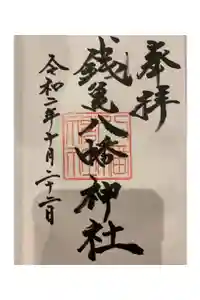 奉拝
銭亀八幡神社
令和二年十月二十二日